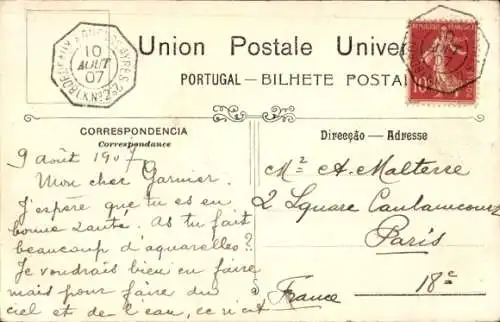 BORDEAUX A BUENOS-AYRES 2º
10
AOUT
07
Union Postale Univer
PORTUGAL - BILHETE POSTAL
REPUBLIQUE FRANÇAISE
10
CORRESPONDENCIA
Correspondance
9 août 1907
Mon cher Garnier.
J'espère que tu es en
bonne santé. As tu fait
beaucoup d'aquarelles?
Je voudrais bien en faire
mais pour faire du
ciel et de l'eau, ce n'est
Direcção - Adresse
Mr A. Malterre
2 Square Caulaincourt
Paris
18e
à
France